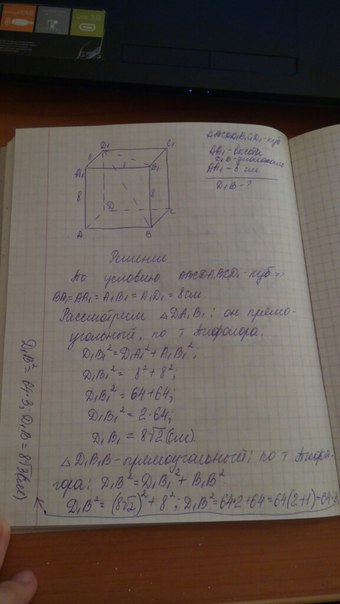 D₁
C₁
A₁
B₁
8
8
8
D
C
A
B
AA₁ = 8 см
D₁B - ?
Решение
По условию ABCDA₁B₁C₁D₁ - куб =>
BB₁ = AA₁ = A₁B₁ = A₁D₁ = 8 см.
Рассмотрим △DA₁B₁: он прямо-
угольный, по т. Пифагора.
D₁B₁² = D₁A₁² + A₁B₁²;
D₁B₁² = 8² + 8²;
D₁B₁² = 64 + 64;
D₁B₁² = 2·64;
D₁B₁ = 8√2 (см)
△D₁B₁B - прямоугольный; по т. Пифа-
гора: D₁B² = D₁B₁² + B₁B²
D₁B² = (8√2)² + 8²; D₁B² = 64·2 + 64 = 64(2+1) = 64·3
D₁B² = 64·3; D₁B = 8√3 (см)